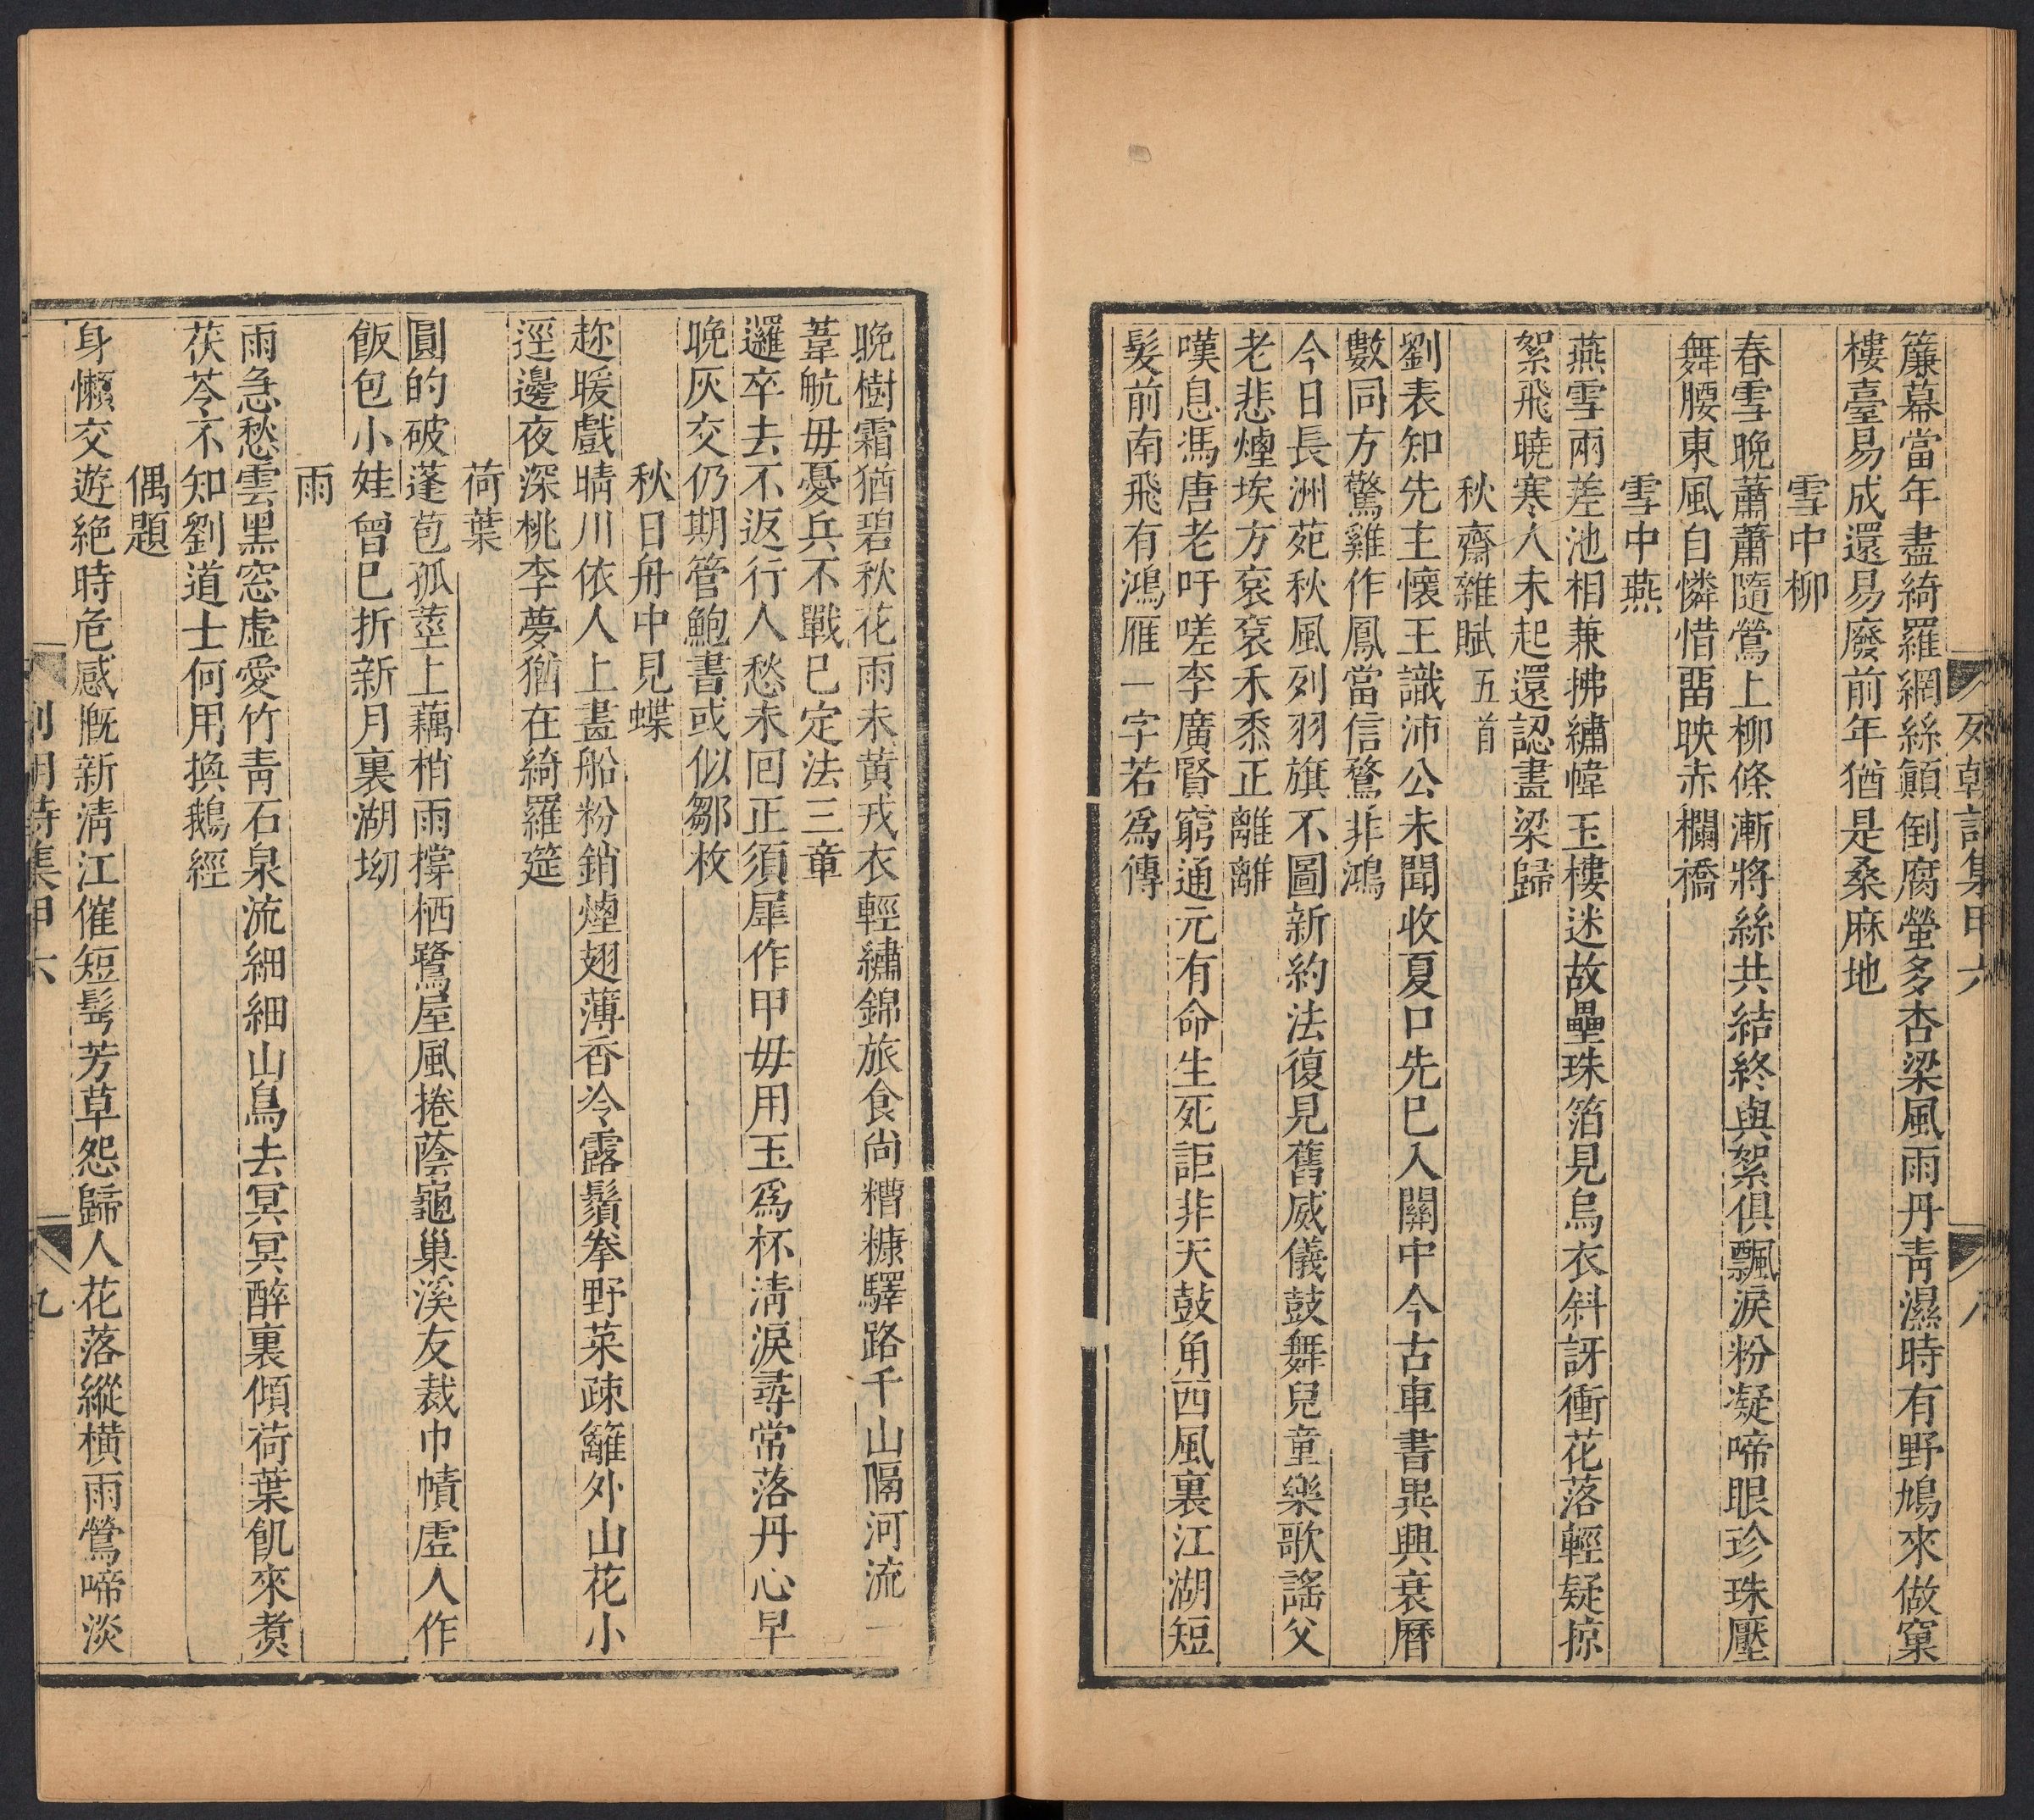 簾幕當年盡綺羅網絲顛倒腐螢多杏梁風雨丹靑濕時有野鳩來做窠
樓臺易成還易廢前年猶是桑麻地
雪中柳
春雪晚蕭蕭隨鶯上柳條漸將絲共結終與絮俱飄淚粉凝啼眼珍珠壓
舞腰東風自憐惜畱映赤欄橋
雪中燕
燕雪兩差池相兼拂繡幃玉樓迷故壘珠箔見烏衣斜訝衝花落輕疑掠
絮飛曉寒人未起還認畫梁歸
秋齋雜賦五首
劉表知先主懷王識沛公未聞收夏口先已入關中今古車書異興衰曆
數同方驚雞作鳳當信鶩非鴻
今日長洲苑秋風列羽旗不圖新約法復見舊威儀鼓舞兒童樂歌謠父
老悲煙埃方袞袞禾黍正離離
嘆息馮唐老吁嗟李廣賢窮通元有命生死詎非天鼓角西風裏江湖短
髮前南飛有鴻雁一字若爲傳
列朝詩集甲六
八
晚樹霜猶碧秋花雨未黃戎衣輕繡錦旅食尙糟糠驛路千山隔河流一
葦航毋憂兵不戰已定法三章
邏卒去不返行人愁未回正須犀作甲毋用玉爲杯淸淚尋常落丹心早
晚灰交仍期管鮑書或似鄒枚
秋日舟中見蝶
趂暖戲晴川依人上畫船粉銷煙翅薄香冷露鬚拳野菜疎籬外山花小
逕邊夜深桃李夢猶在綺羅筵
荷葉
圓的破蓬苞孤莖上藕梢雨撐栖鷺屋風捲蔭龜巢溪友裁巾幘虛人作
飯包小娃曾已折新月裏湖坳
雨
雨急愁雲黑窓虛愛竹靑石泉流細細山鳥去冥冥醉裏傾荷葉飢來煑
茯苓不知劉道士何用換鵝經
偶題
身懶交遊絕時危感慨新淸江催短髩芳草怨歸人花落縱橫雨鶯啼淡
列朝詩集甲六
九